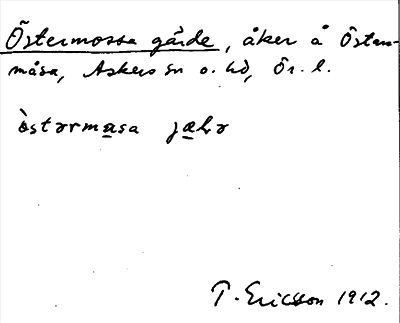 Östermossa gärde, åker å Östermåsa, Askers sn o. hd, Ör. l.
òstərmasa jæḷə
T. Ericsson 1912.